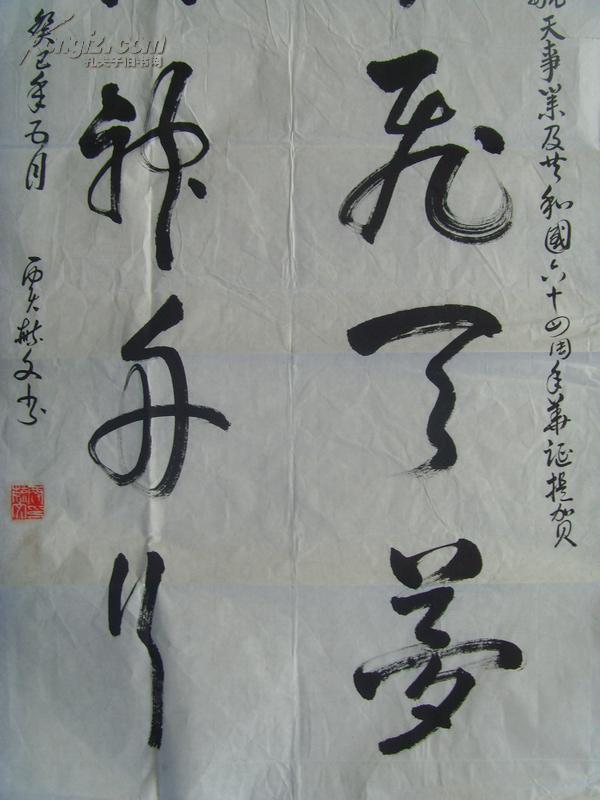 天事業及共和國六十四周年華誕提賀
飛天夢
神舟行
癸巳年五月
賈敬文书
kongfz.com
孔夫子旧书网